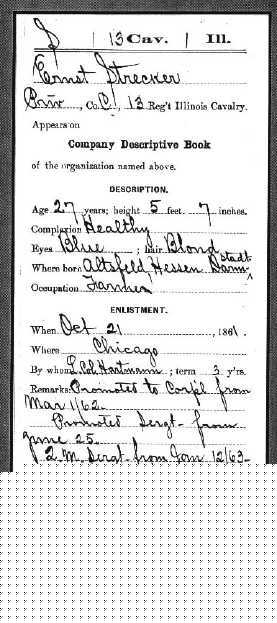 S | 13 Cav. | Ill.
Ernst Strecker
Priv, Co. C, 13 Reg't Illinois Cavalry.
Appears on
Company Descriptive Book
of the organization named above.
DESCRIPTION.
Age 27 years; height 5 feet 7 inches.
Complexion Healthy
Eyes Blue ; hair Blond
Where born Altsfeld, Hessen Darm^stadt
Occupation Farmer
ENLISTMENT.
When Oct 21, 1861.
Where Chicago
By whom Hartmann ; term 3 y'rs.
Remarks: Promoted to Corp'l from
Mar 1/62.
Promoted Sergt. from
June 25.
2. M. Sergt. from Jan 12/63.